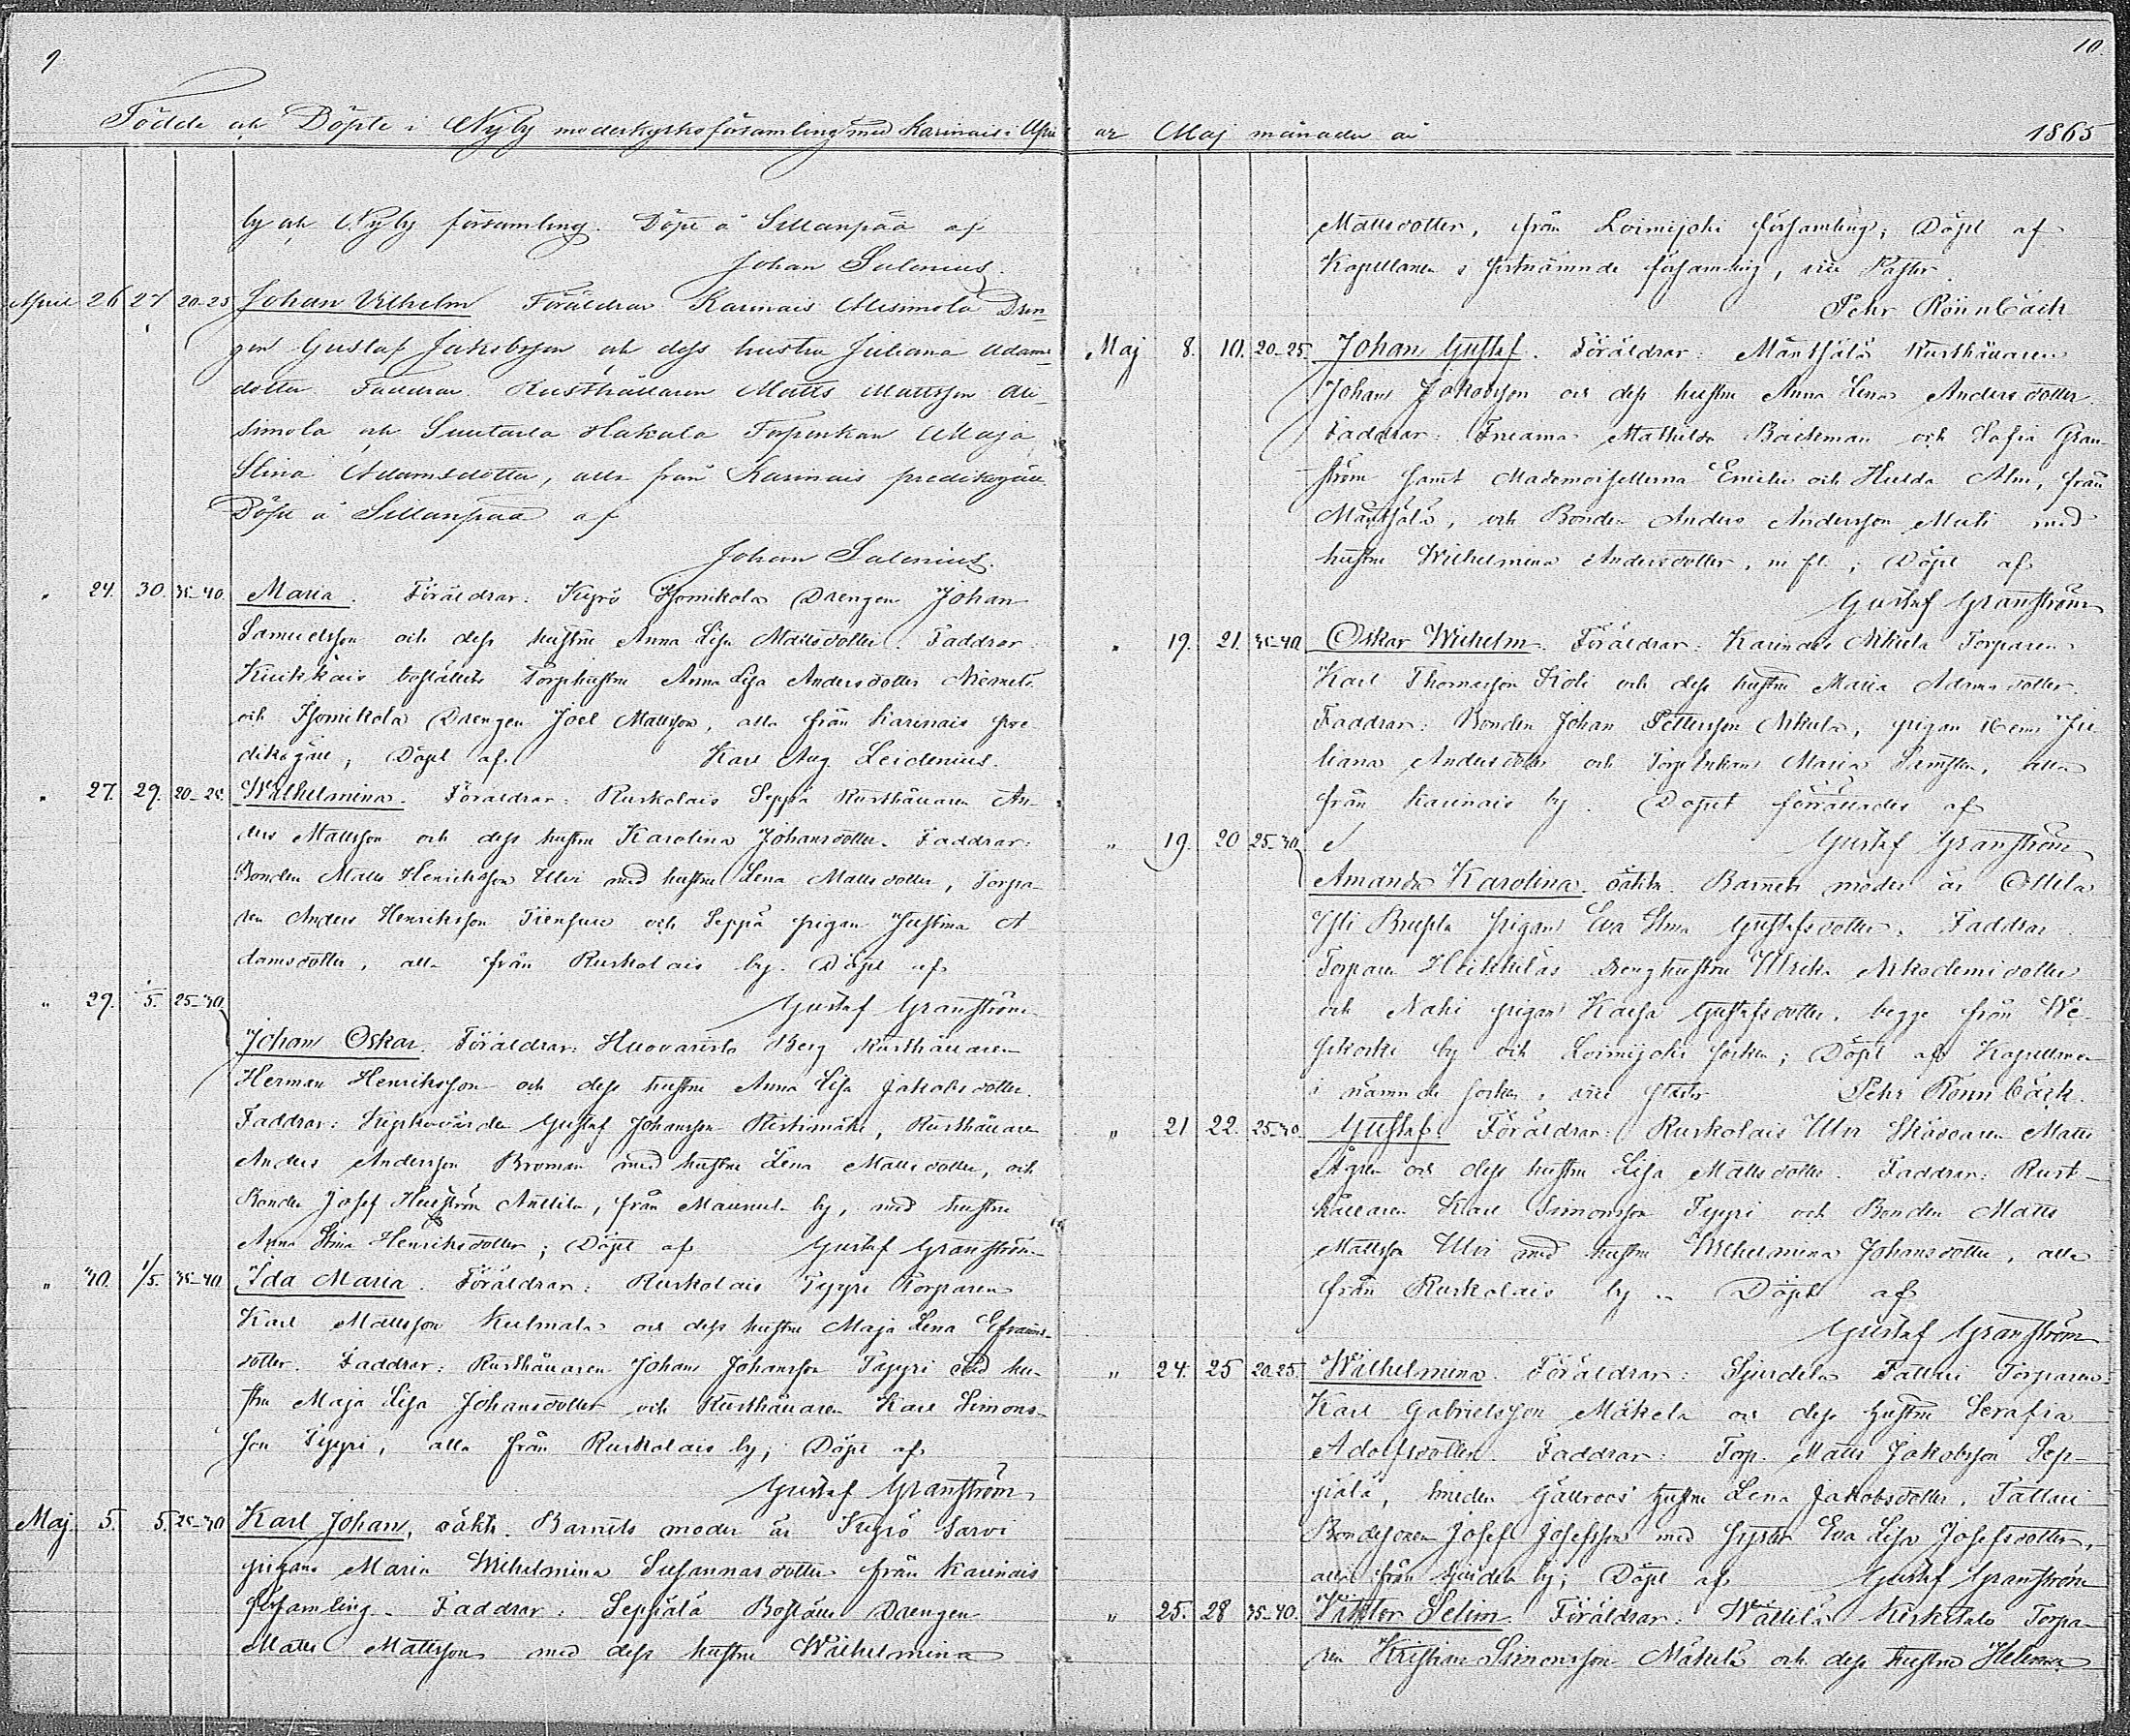 9
Födde och Döpte i Nyby moderkyrkoförsamling med Karinais i April
by och Nyby församling. Döpt å Sillanpää af
Johan Salenius.
April 26 27 20-25 Johan Vilhelm Föräldrar Karinais Alisimola Dren-
gen Gustaf Jakobsson och dess hustru Juliana Adams
dotter. Faddrar. Rusthållaren Matts Mattsson Ali-
simola och Suutarla Hakala Torpenkan Maja
Stina Adamsdotter, alla från Karinais predikogäll.
Döpt å Sillanpää af
Johan Salenius.
" 24. 30. 35-40 Maria. Föräldrar: Kyrö Isomikola Drengen Johan
Samuelsson och dess hustru Anna Lisa Mattsdotter. Faddrar:
boställets Torphustru Anna Lisa Andersdotter
och Isomikola Drengen Joel Mattsson, alla från Karinais pre-
dikogäll; Döpt af Karl Aug. Leidenius.
" 27. 29. 20-25. Wilhelmina. Föräldrar: Ruskolais Seppä Rusthållaren An-
ders Mattsson och dess hustru Karolina Johansdotter. Faddrar:
Bonden Matts Henriksson Ulvi med hustru Lena Mattsdotter, Torpa-
ren Anders Henriksson och Seppä pigan Justina A-
damsdotter, alla från Ruskolais by. Döpt af
Gustaf Granström
" 29. 1/5. 25-30 Johan Oskar. Föräldrar: Berg Rusthållaren
Herman Henriksson och dess hustru Anna Lisa Jakobsdotter.
Faddrar: Kyrkovärden Gustaf Johansson Ristimäki, Rusthållaren
Anders Andersson Broman med hustru Lena Mattsdotter, och
Bonden Josef Hellström Anttila, från by, med hustru
Anna Stina Henriksdotter; Döpt af Gustaf Granström
" 30. 1/5. 35-40 Ida Maria. Föräldrar: Ruskolais Tyyri Torparen
Karl Mattsson Kulmala och dess hustru Maja Lena Efraims-
dotter. Faddrar: Rusthållaren Johan Johansson Tyyri med hu-
stru Maja Lisa Johansdotter och Rusthållaren Karl Simons-
son Tyyri, alla från Ruskolais by; Döpt af
Gustaf Granström
Maj 5. 5. 25-30 Karl Johan, oäkta. Barnets moder är Kyrö Sarvi
pigan Maria Wilhelmina Susannasdotter från Karinais
församling. Faddrar: Seppälä Boställe Drengen
Matts Mattsson med dess hustru Wilhelmina
10.
ar Maj månader år 1865
Mattsdotter, från Loimijoki församling; Döpt af
Kapellanen i förenämnde församling, vice Pastor
Pehr Rönnbäck
Maj 8. 10. 20-25. Johan Gustaf. Föräldrar: Mäntsälä Rusthållaren
Johan Jakobsson och dess hustru Anna Lena Andersdotter
Faddrar: Fruarna Mathilda Bäckman och Sofia Gran-
ström samt Mademoisellerna Emilie och Hulda Alm, från
Mäntsälä, och Bonden Anders Andersson med
hustru Wilhelmina Andersdotter, m. fl.; Döpt af
Gustaf Granström
" 19. 21. 35-40. Oskar Wilhelm. Föräldrar: Karinais Nikula Torparen
Karl Thomasson Koli och dess hustru Maria Adamsdotter.
Faddrar: Bonden Johan Pettersson Nikula, pigan Ju-
liana Andersdotter och Torpenkan Maria, alla
från Karinais by. Dopet förrättades af
Gustaf Granström
" 19. 20 25-30. Amanda Karolina. oäkta. Barnets moder är Ottila
pigan Eva Stina Gustafsdotter. Faddrar
Torparen Heikkiläs Drenghustru Ulrika
och Nahi pigan Kaisa Gustafsdotter, begge från We-
by och Loimijoki socken; Döpt af Kapellanen
i nämnde socken, vice Pastor Pehr Rönnbäck.
" 21 22. 25-30. Gustaf. Föräldrar: Ruskolais Ulvi Skräddaren Matts
Ågren och dess hustru Lisa Mattsdotter. Faddrar: Rust-
hållaren Karl Simonsson Tyyri och Bonden Matts
Mattsson Ulvi med hustru Wilhelmina Johansdotter, alla
från Ruskolais by. Döpt af
Gustaf Granström
" 24. 25 20.25. Wilhelmina. Föräldrar: Sjundela Tattari Torparen
Karl Gabrielsson Mäkelä och dess hustru Serafia
Adolfsdotter. Faddrar: Torp. Matts Jakobsson Sep-
pälä, Smeden Gällroos' hustru Lena Jakobsdotter, Tattari
Bondesonen Josef Josefsson med syster Eva Lisa Josefsdotter,
alla från Sjundela by; Döpt af Gustaf Granström
" 25. 28 35-40. Viktor Selim. Föräldrar: Wättilä Torpa-
ren Kristian Simonsson Mäkelä och dess hustru Helena